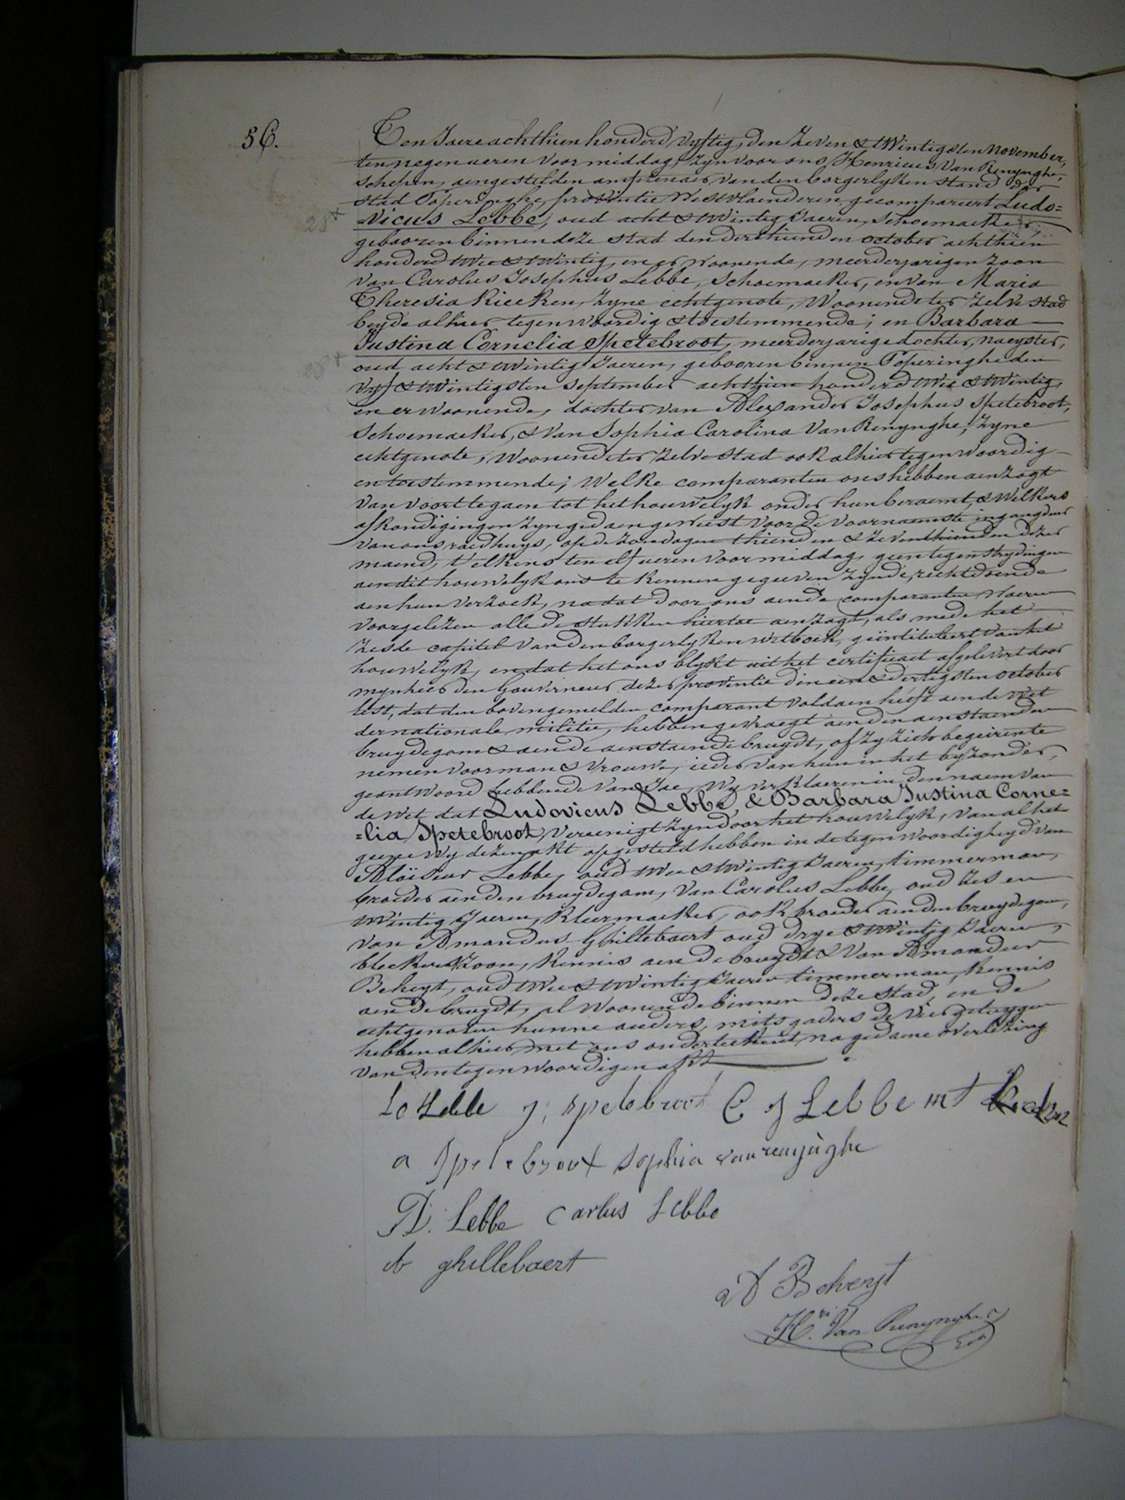 56.
Ten Jaere achthien honderd vyftig, den zeven & twintigsten November,
ten negen ueren voor middag, zyn voor ons Henricus Van Renynghe,
schepen, aengestelden ambtenaer van den borgerlyken stand der
stad Poperinghe, provintie Westvlaenderen, gecompareert Ludo=
28+
=vicus Lebbe, oud acht & twintig Jaeren, schoemaeker,
gebooren binnen deze stad den derthienden october achthien
honderd twee & twintig, en er woonende, meerderjarigen zoon
van Carolus Josephus Lebbe, schoemaeker, en van Maria
Theresia Kiecken, zyne echtgenote, woonende ter zelve stad
beyde alhier tegenwoordig & toestemmende; en Barbara
Justina Cornelia Spetebroot, meerderjarige dochter, naeyster,
oud acht & twintig Jaeren, gebooren binnen Poperinghe den
vyf & twintigsten september achthien honderd twee & twintig,
en er woonende, dochter van Alexander Josephus Spetebroot,
schoemaeker, & van Sophia Carolina Van Renynghe, zyne
echtgenote, woonende ter zelve stad ook alhier tegenwoordig
en toestemmende; Welke comparanten ons hebben aenzogt
van voort te gaen tot het houwelyk onder hun beraemt, & welkers
afkondigingen zyn gedaen geweest voor de voornaemste ingangdeur
van ons raedhuys, op de zondagen thienden & zeventhienden dezer
maend, t'elkens ten elf ueren voor middag, geen tegenstrydingen
aen dit houwelyk ons te kennen gegeeven zynde, rechtdoende
aen hun verzoek, na dat door ons aen de comparanten klaer
voorgelezen alle de stukken hiertoe aenzogt, als mede het
zesde capitel van den borgerlyken wetboek, geintituleert van het
houwelyk, en dat het ons blykt uit het certificaet afgelevert door
mynheer den Gouverneur dezer provintie den een & dertigsten october
lest, dat den bovengemelden comparant voldaen heeft aen de wet
der nationale militie, hebben gevraegt aen den aenstaenden
bruydegom & aen de aenstaende bruydt, of zy zich begeirente
nemen voor man & vrouwe, ieder van hun in het byzonder,
geantwoord hebbende van Jae, Wy verklaeren in den naem van
de wet dat Ludovicus Lebbe & Barbara Justina Corne=
=lia Spetebroot vereenigt zyn door het houwelyk, van al het
geene wy dezen akt opgesteld hebben in de tegenwoordigheyd van
Aloïsius Lebbe, oud twee & twintig Jaeren, timmerman,
broeder aen den bruydegom, van Carolus Lebbe, oud zes en
twintig Jaeren, kleermaeker, ook broeder aen den bruydegom,
van Amandus Ghillebaert oud drye & twintig Jaeren,
bleekers zoon, kennis aen de bruydt & van Amandus
Beheyt, oud twee & twintig Jaeren timmerman, kennis
aen de bruydt, al woonende binnen deze stad, en de
echtgenoten hunne ouders, mitsgaders de vier getuygen
hebben alhier met ons onderteekent, na gedaene overlezing
van den tegenwoordigen akt.
Lo Lebbe J. Spetebroot C J Lebbe m t Kiecken
a Spetebroot sophia vanrenynghe
A. Lebbe Carlus Lebbe
ghillebaert
Beheyt
H.ri Van Renynghe